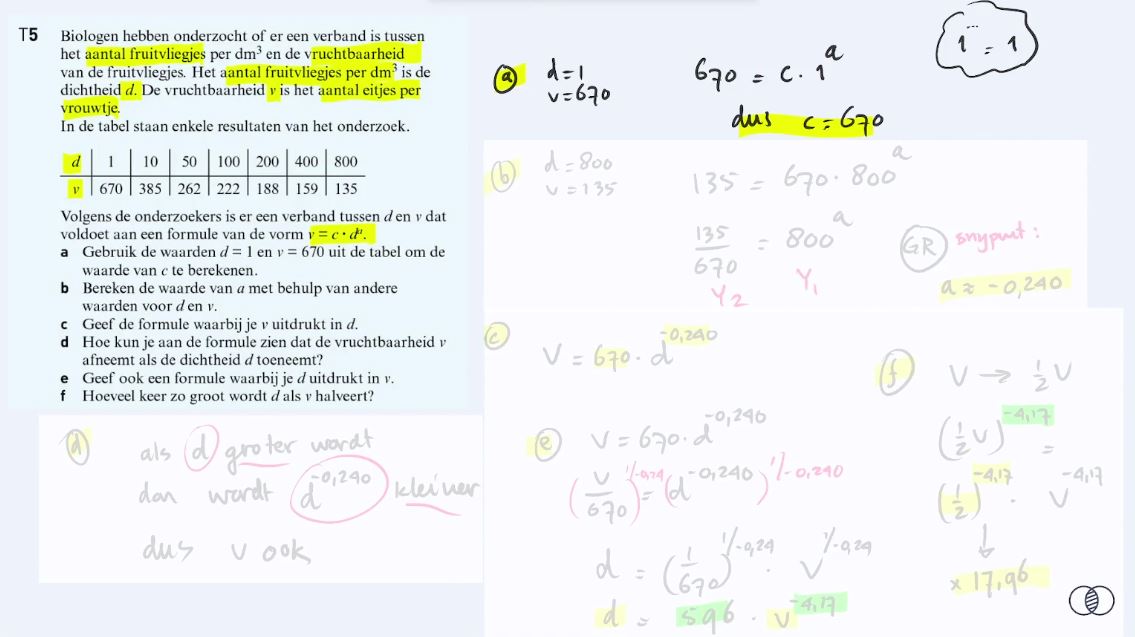 T5 Biologen hebben onderzocht of er een verband is tussen
het aantal fruitvliegjes per dm³ en de vruchtbaarheid
van de fruitvliegjes. Het aantal fruitvliegjes per dm³ is de
dichtheid d. De vruchtbaarheid v is het aantal eitjes per
vrouwtje.
In de tabel staan enkele resultaten van het onderzoek.
d 1 10 50 100 200 400 800
v 670 385 262 222 188 159 135
Volgens de onderzoekers is er een verband tussen d en v dat
voldoet aan een formule van de vorm v = c · dᵃ.
a Gebruik de waarden d = 1 en v = 670 uit de tabel om de
waarde van c te berekenen.
b Bereken de waarde van a met behulp van andere
waarden voor d en v.
c Geef de formule waarbij je v uitdrukt in d.
d Hoe kun je aan de formule zien dat de vruchtbaarheid v
afneemt als de dichtheid d toeneemt?
e Geef ook een formule waarbij je d uitdrukt in v.
f Hoeveel keer zo groot wordt d als v halveert?
a d=1 670 = c · 1ᵃ
v=670
dus c=670
1^... = 1
b d=800 135 = 670 · 800ᵃ
v=135
135/670 = 800ᵃ
Y2 Y1
GR snijpunt:
a ≈ -0,240
c V = 670 · d^-0,240
d als d groter wordt
dan wordt d^-0,240 kleiner
dus v ook
e V = 670 · d^-0,240
(V/670)^1/-0,24 = (d^-0,240)^1/-0,240
d = (1/670)^1/-0,24 · V^1/-0,24
d = 596 · V^-4,17
f V → ½V
(½V)^-4,17 =
(½)^-4,17 · V^-4,17
↓
× 17,96